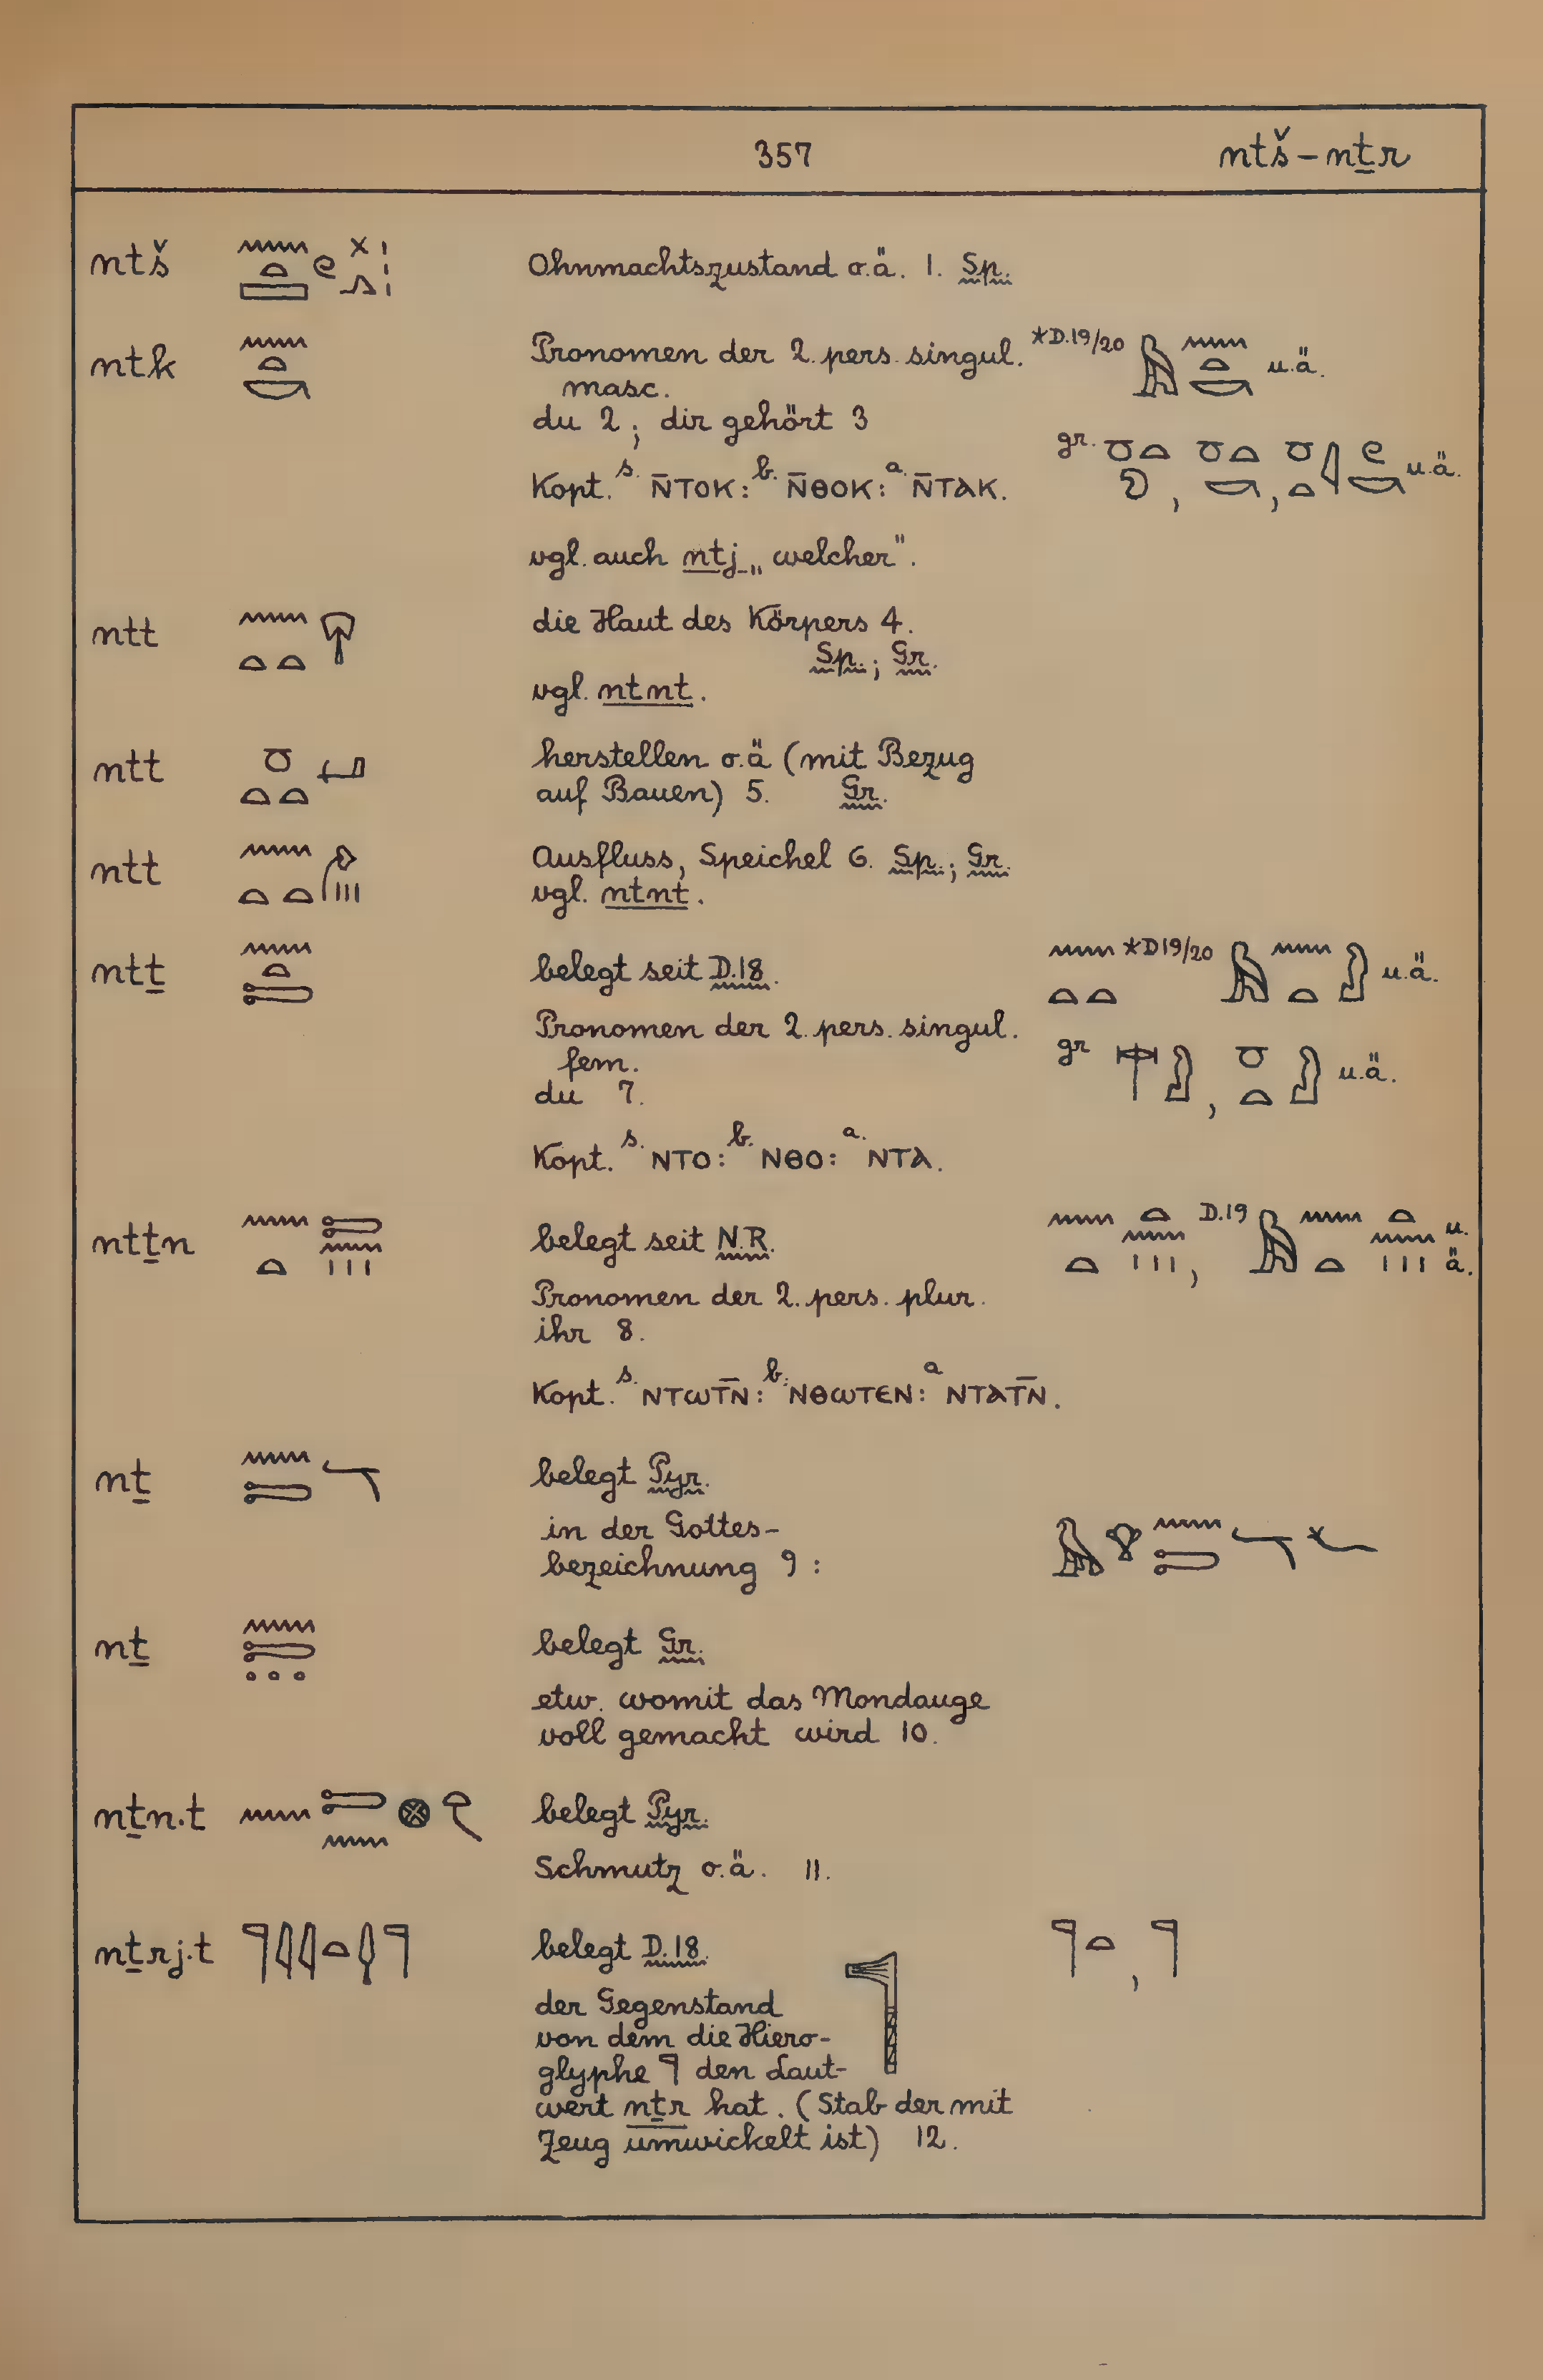 357
ntš – nṯr
ntš
Ohnmachtszustand o.ä. 1. Sp.
ntk
Pronomen der 2. pers. singul.
masc.
*D.19/20
u.ä.
du 2; dir gehört 3
gr.
u.ä.
Kopt. s. N̄ΤΟΚ: b. N̄ΘΟΚ: a. N̄ΤΑΚ.
vgl. auch ntj „welcher".
ntt
die Haut des Körpers 4.
Sp.; Gr.
vgl. ntnt.
ntt
herstellen o.ä (mit Bezug
auf Bauen) 5. Gr.
ntt
Ausfluss, Speichel 6. Sp.; Gr.
vgl. ntnt.
ntṯ
belegt seit D.18.
*D19/20
u.ä.
Pronomen der 2. pers. singul.
fem.
gr
u.ä.
du 7.
Kopt. s. ΝΤΟ: b. ΝΘΟ: a. ΝΤΑ.
ntṯn
belegt seit N.R.
D.19
u.
ä.
Pronomen der 2. pers. plur.
ihr 8.
Kopt. s. ⲚⲦⲰⲦ̄Ⲛ̄: b. ⲚⲐⲰⲦⲈⲚ: a ⲚⲦⲀⲦ̄Ⲛ̄.
nṯ
belegt Pyr.
in der Gottes-
bezeichnung 9:
nṯ
belegt Gr.
etw. womit das Mondauge
voll gemacht wird 10.
nṯn.t
belegt Pyr.
Schmutz o.ä. 11.
nṯrj.t
belegt D.18.
der Gegenstand
von dem die Hiero-
glyphe 𓊹 den Laut-
wert nṯr hat. (Stab der mit
Zeug umwickelt ist) 12.